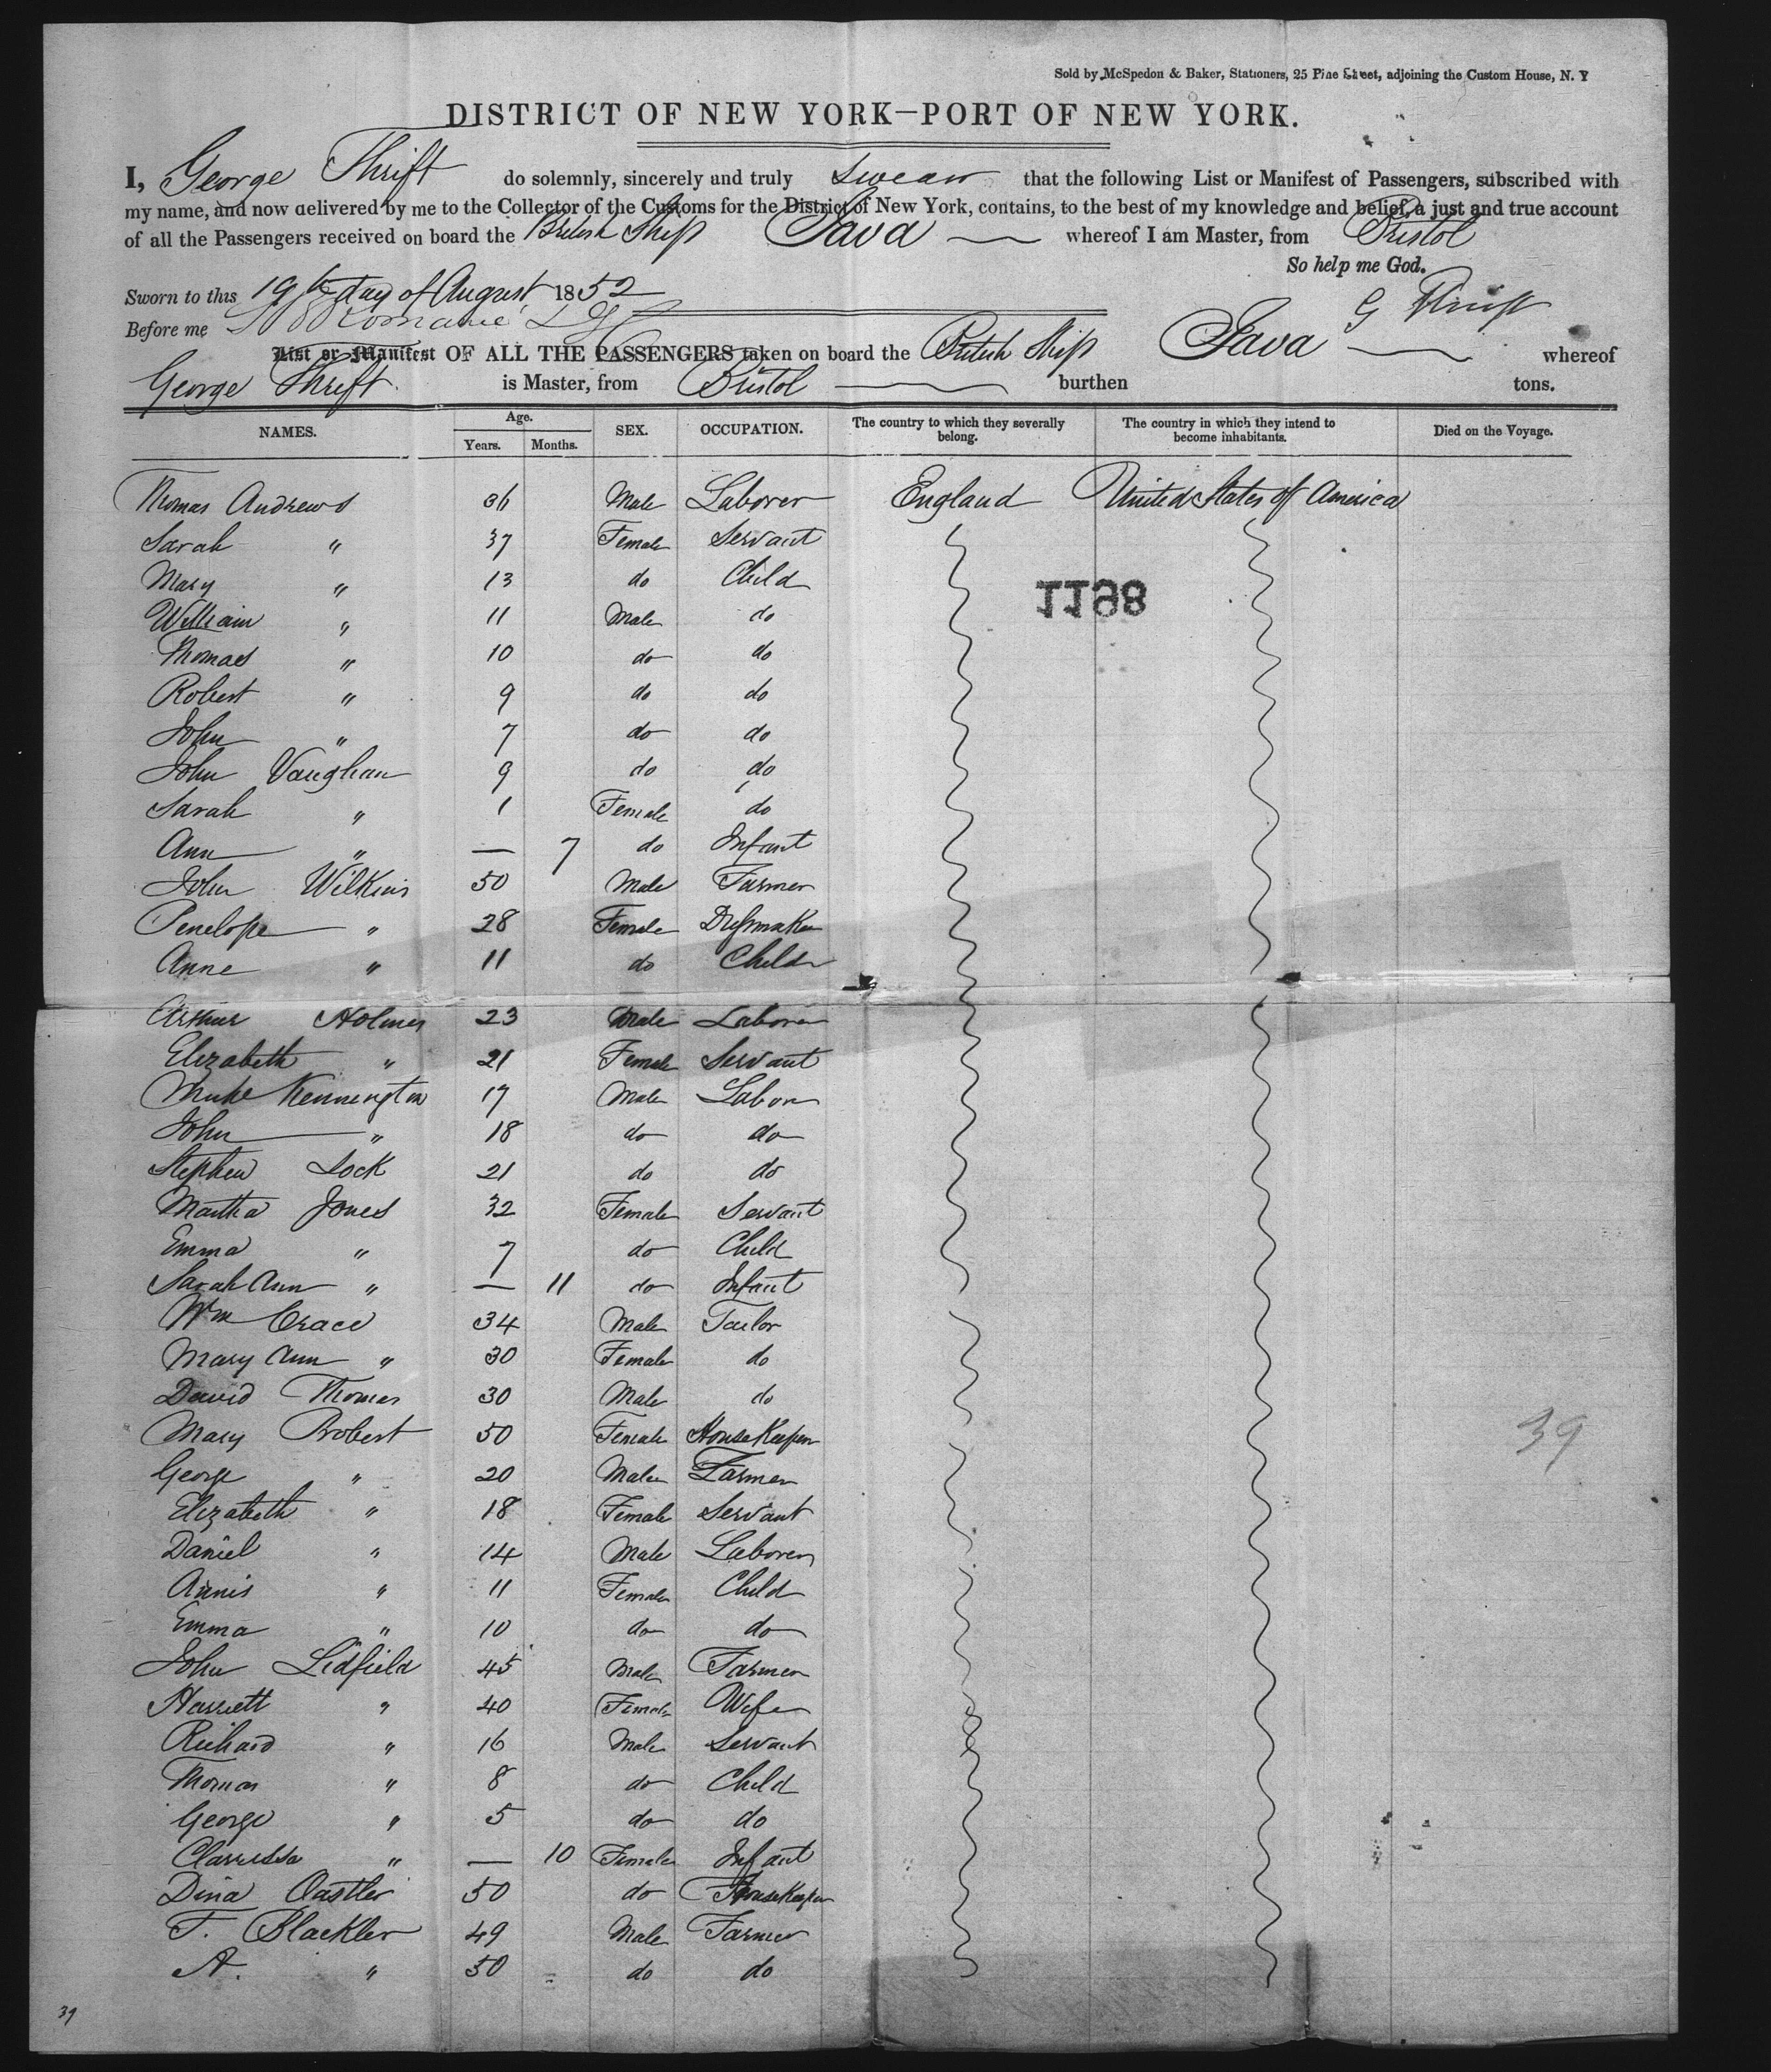 Sold by McSpedon & Baker, Stationers, 25 Pine Street, adjoining the Custom House, N. Y
DISTRICT OF NEW YORK—PORT OF NEW YORK.
I, George Thrift do solemnly, sincerely and truly swear that the following List or Manifest of Passengers, subscribed with
my name, and now delivered by me to the Collector of the Customs for the District of New York, contains, to the best of my knowledge and belief, a just and true account
of all the Passengers received on board the British Ship Java whereof I am Master, from Bristol
So help me God.
Sworn to this 19th day of August 1852
G Thrift
Before me
List or Manifest OF ALL THE PASSENGERS taken on board the British Ship Java whereof
George Thrift is Master, from Bristol burthen tons.
NAMES. Age. Years. Months. SEX. OCCUPATION. The country to which they severally belong. The country in which they intend to become inhabitants. Died on the Voyage.
Thomas Andrews 36 Male Laborer England United States of America
Sarah " 37 Female Servant
Mary " 13 do Child
1198
William " 11 Male do
Thomas " 10 do do
Robert " 9 do do
John " 7 do do
John Vaughan 9 do do
Sarah " 1 Female do
Ann " — 7 do Infant
John Wilkins 50 Male Farmer
Penelope " 28 Female Dressmaker
Anne " 11 do Child
Arthur Holmes 23 Male Laborer
Elizabeth " 21 Female Servant
Kennington 17 Male Labor
John " 18 do do
Stephen Lock 21 do do
Martha Jones 32 Female Servant
Emma " 7 do Child
Sarah Ann " — 11 do Infant
Wm Crace 34 Male Tailor
Mary Ann " 30 Female do
David Thomas 30 Male do
Mary Probert 50 Female HouseKeeper
39
George " 20 Male Farmer
Elizabeth " 18 Female Servant
Daniel " 14 Male Laborer
Annis " 11 Female Child
Emma " 10 do do
John Lidfield 45 Male Farmer
Harriett " 40 Female Wife
Richard " 16 Male Servant
Thomas " 8 do Child
George " 5 do do
Clarissa " — 10 Female Infant
Dina Oastler 50 do HouseKeeper
F. Blackler 49 Male Farmer
A. " 50 do do
39